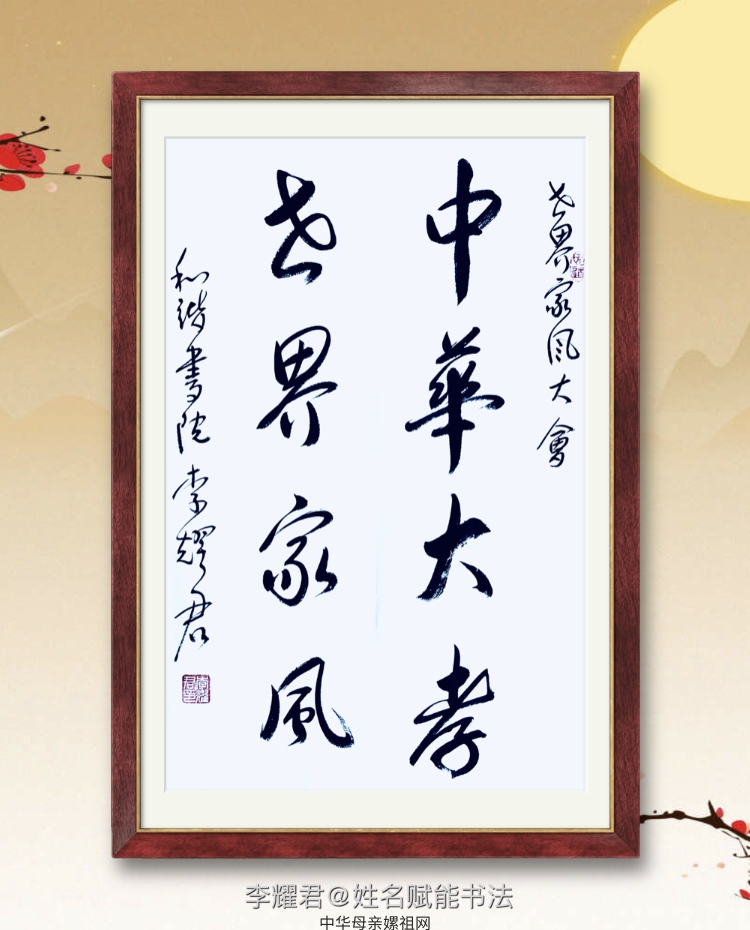 世界家风大會
中華大孝
世界家風
和谐書院 李耀君
李耀君@姓名赋能书法
中华母亲嫘祖网